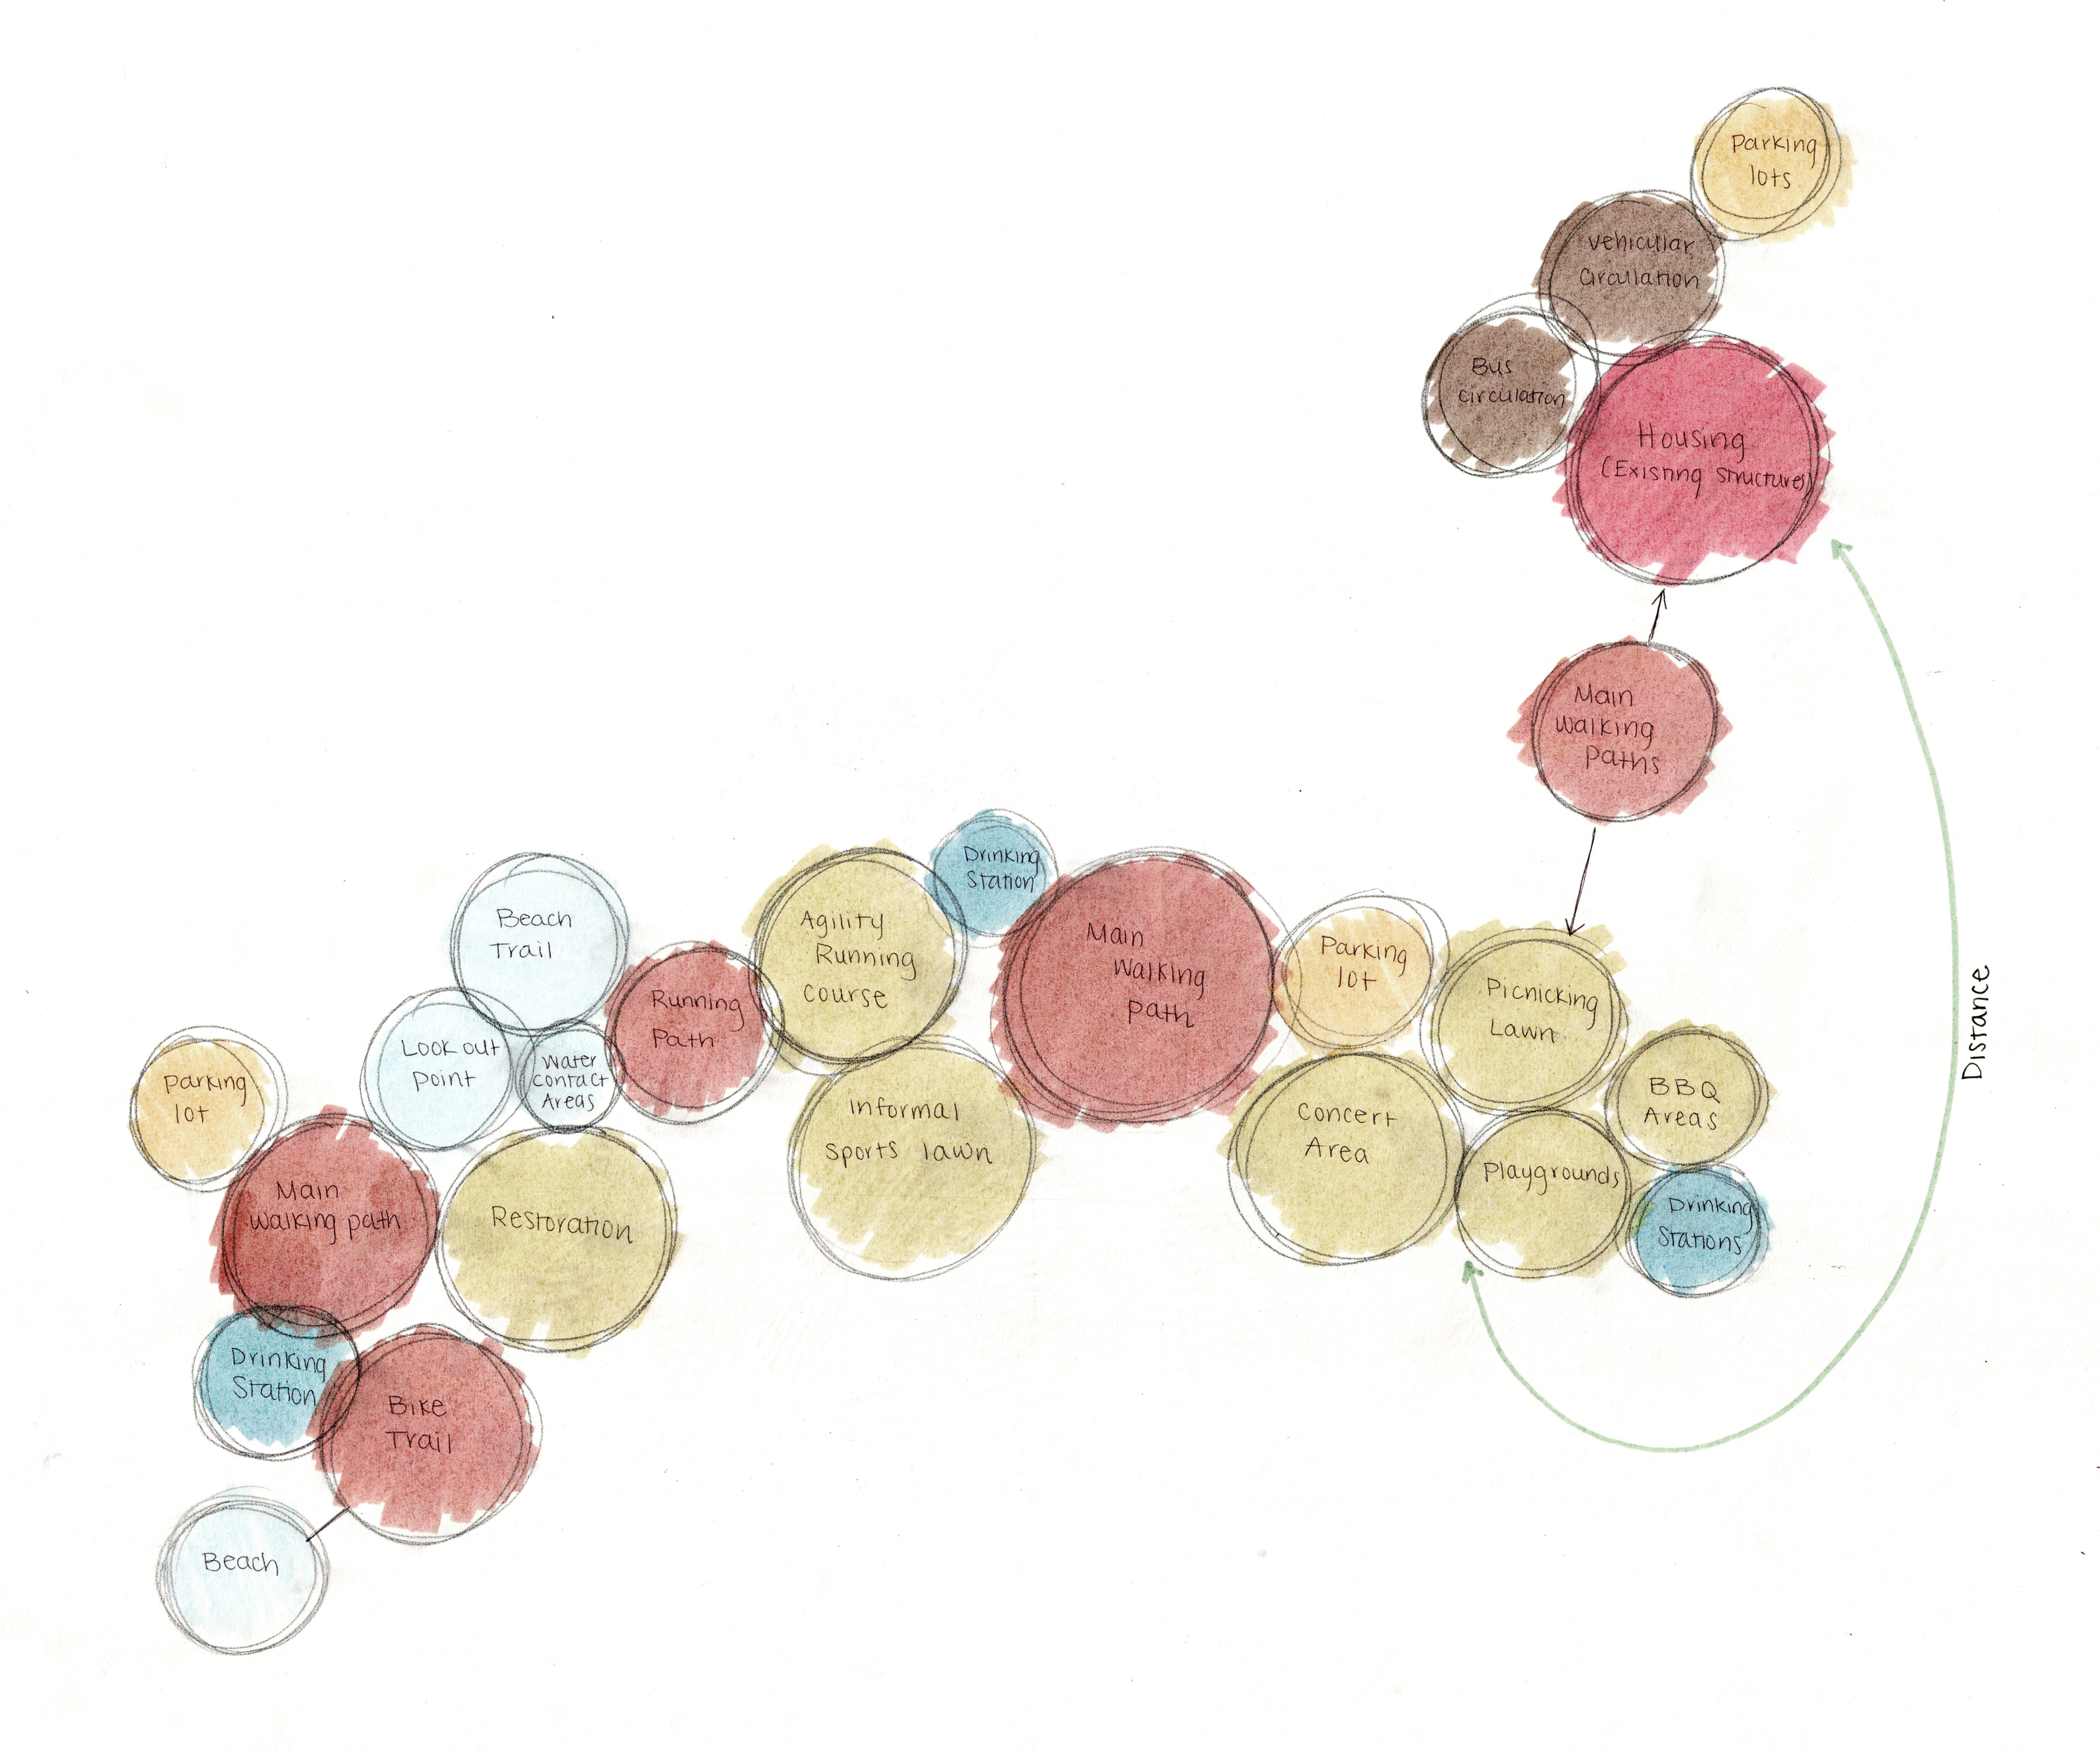 Parking
lots
vehicular
circulation
Bus
circulation
Housing
(Existing structures)
Main
Walking
Paths
Distance
Drinking
Station
Beach
Trail
Agility
Running
course
Main
Walking
path
Parking
lot
Picnicking
Lawn
Look out
point
Water
contact
Areas
Running
Path
BBQ
Areas
Parking
lot
Informal
sports lawn
Concert
Area
Playgrounds
Main
walking path
Restoration
Drinking
Stations
Drinking
Station
Bike
Trail
Beach